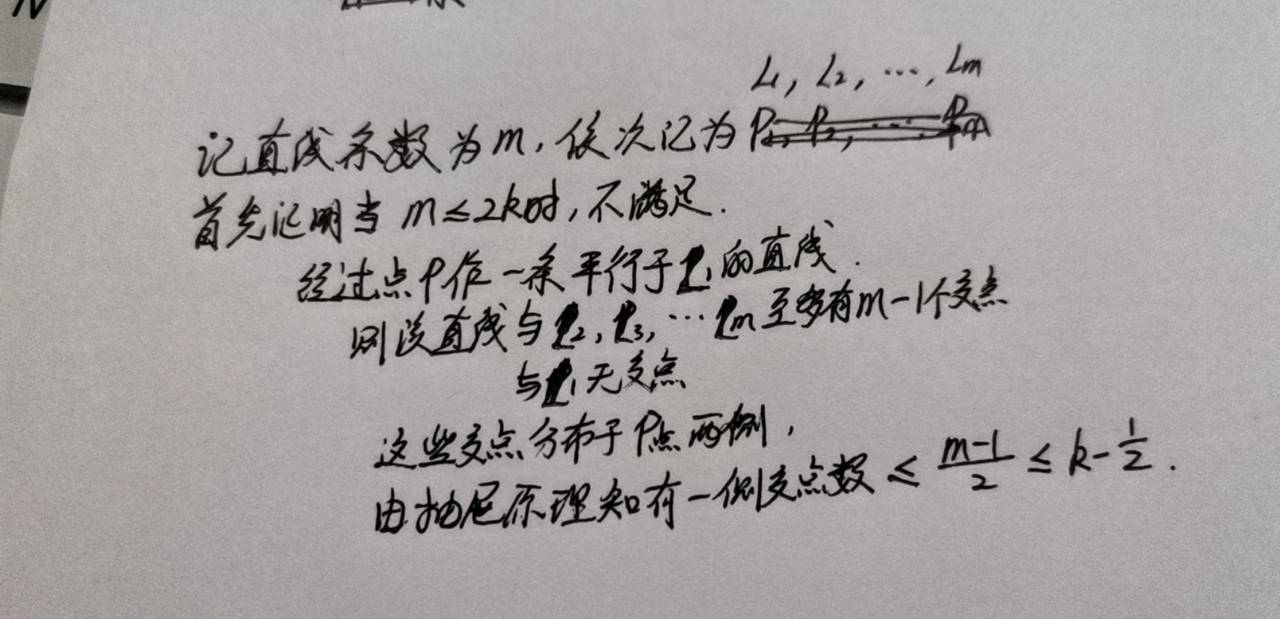 L₁, L₂, ⋯, Lm
记直线条数为m,依次记为
首先证明当 m≤2k时,不满足.
经过点P作一条平行于L₁的直线.
则该直线与L₂,L₃,⋯Lm至多有m-1个交点
与L₁无交点
这些交点分布于P点两侧,
由抽屉原理知有一侧交点数 ≤ (m-1)/2 ≤ k-1/2.